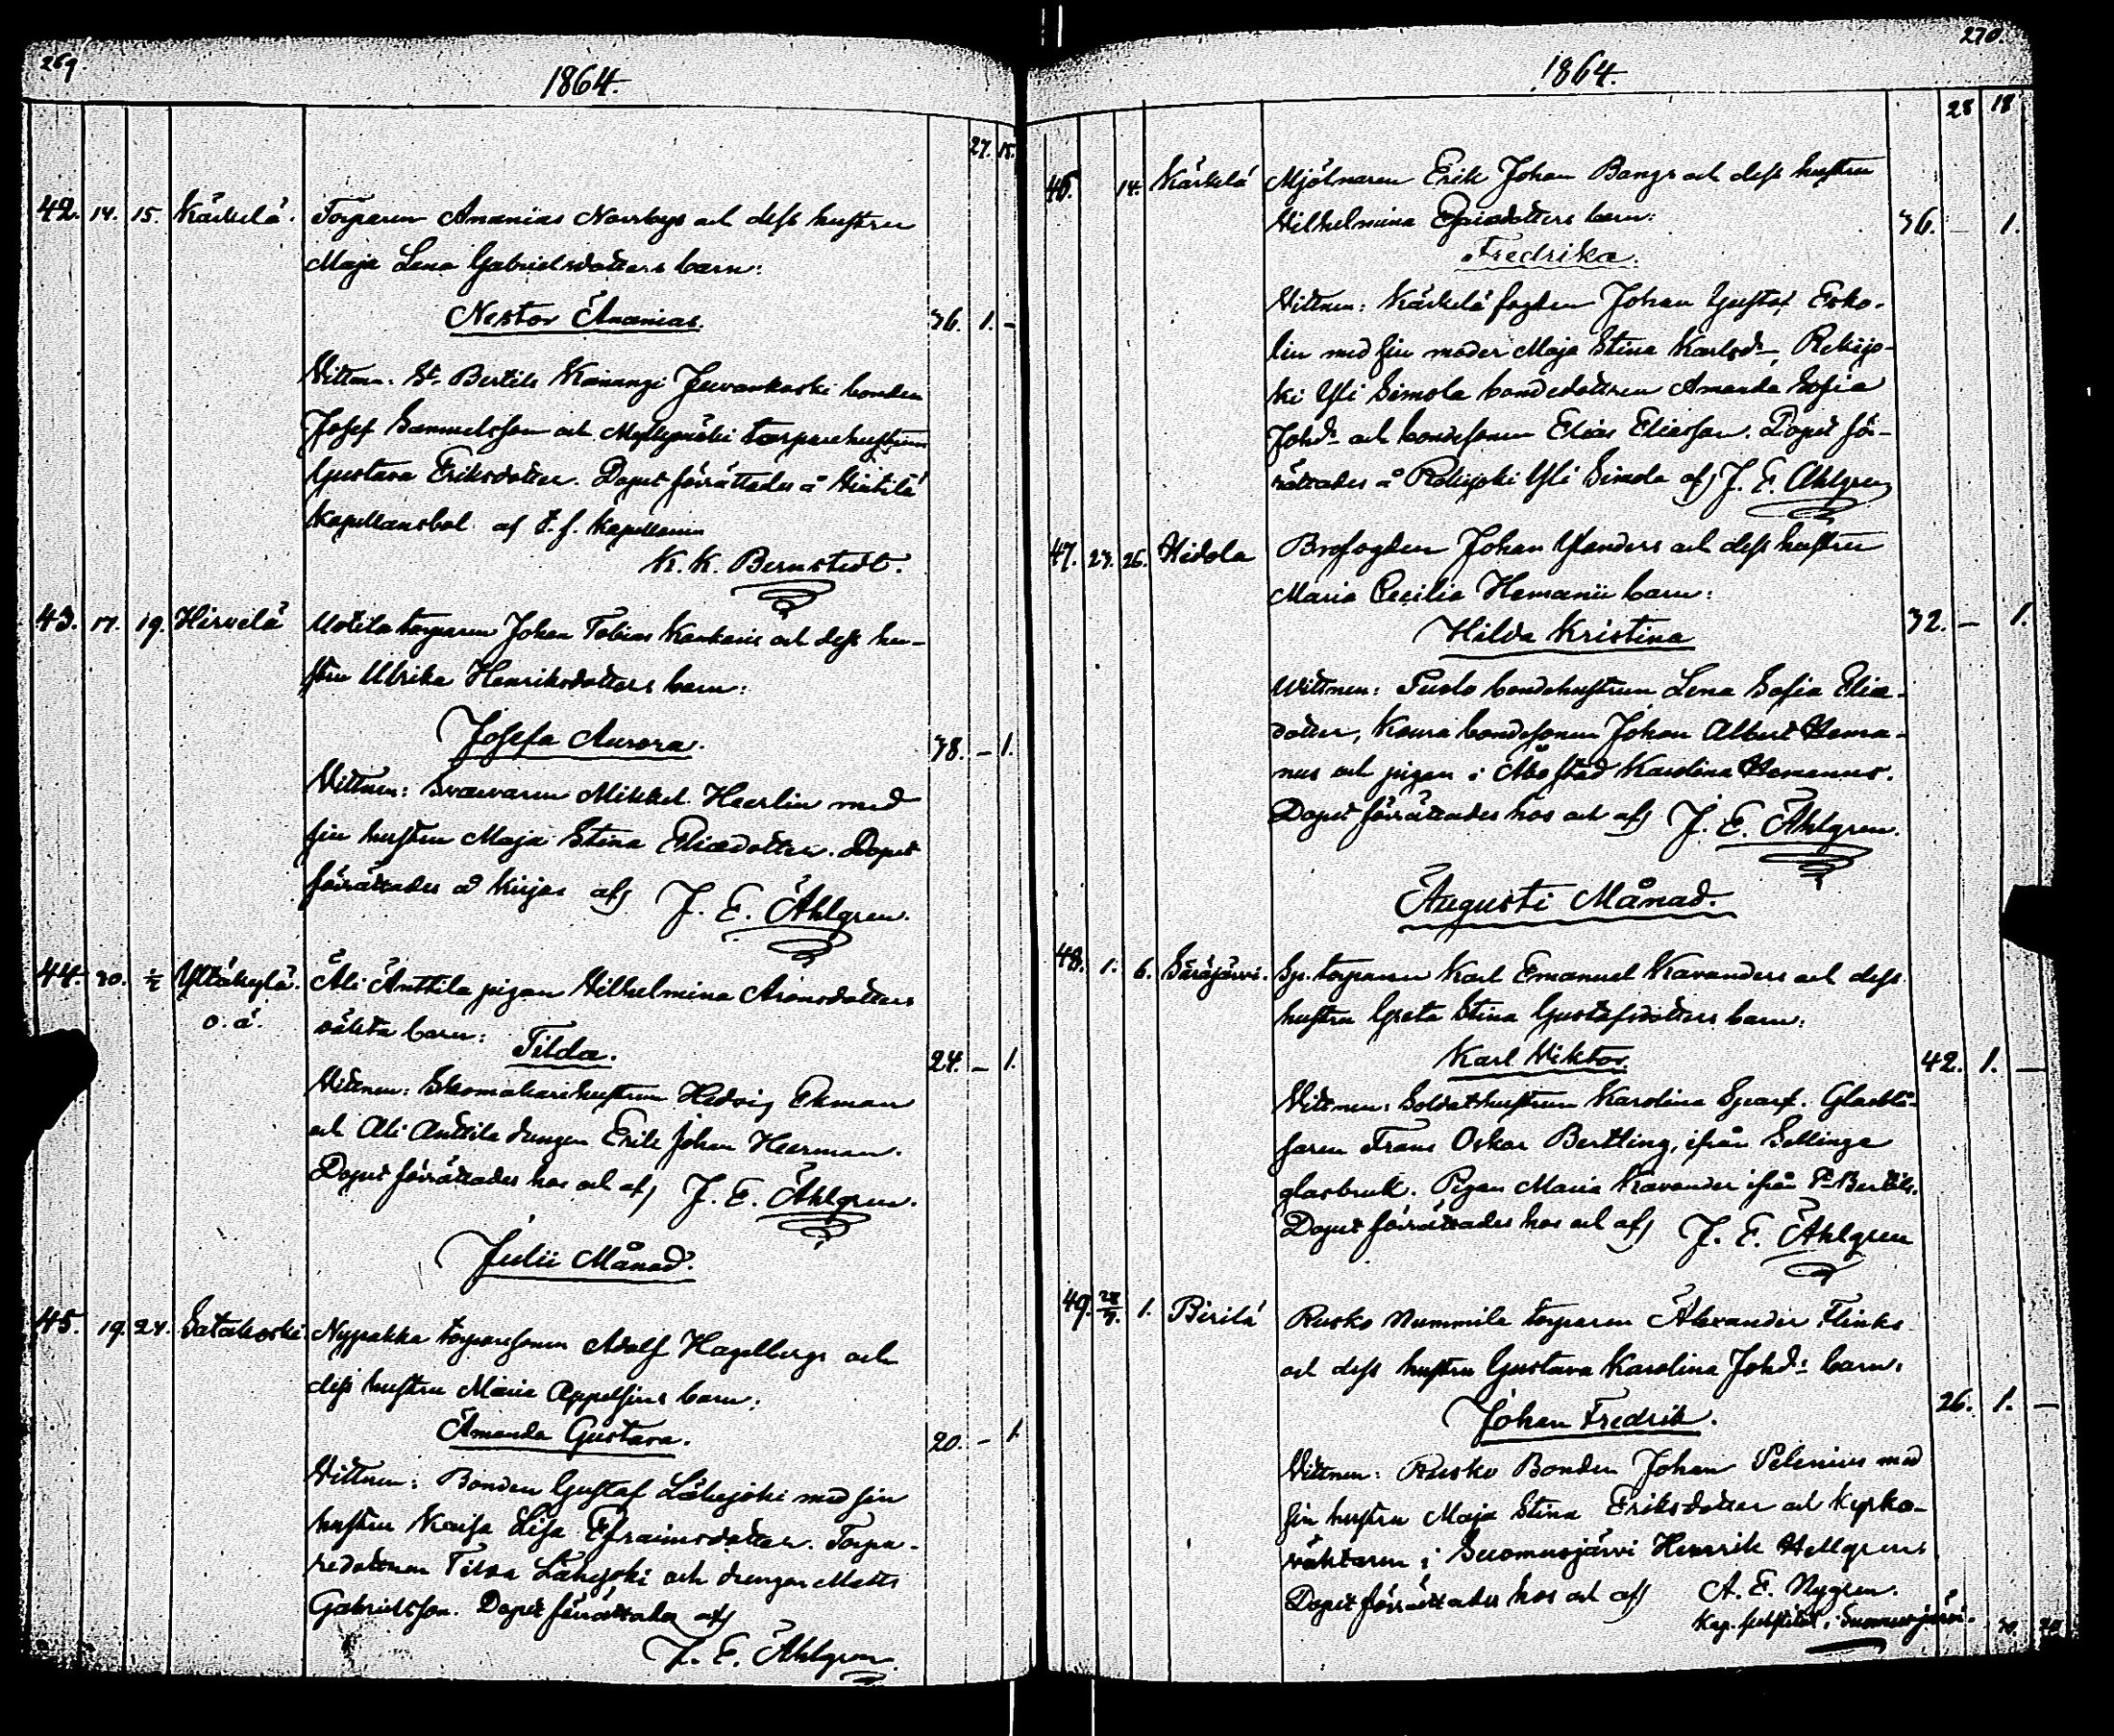 269.
1864.
27. 15.
42. 14. 15. Kärkelä. Torparen Ananias Norrbys och dess hustru
Maja Lena Gabrielsdotters barn:
Nestor Ananias. 36. 1. –
Vittnen: St. Bertils Kaivangi Juvankoski bonden
Josef Samuelsson och Myllymäki torparehustrun
Gustava Eriksdotter. Dopet förrättades å Hintilä
Kapellansbol af t.f. Kapellanen
K. K. Bernstedt.
43. 17. 19. Hirvelä Uotila torparen Johan Tobias Kankares och dess hu-
stru Ulrika Henriksdotters barn:
Josefa Aurora. 38. – 1.
Vittnen: Svarvaren Mikkel Heerlin med
sin hustru Maja Stina Eliædotter. Dopet
förrättades af J. E. Ahlgren.
44. 30. Yltäkylä. Ali Anttila pigan Vilhelmina Aronsdotters
o. ä. oäkta barn: Tilda. 24. – 1.
Vittnen: Skomakarehustrun Hedvig Ekman
och Ali Anttila drengen Erik Johan Heerman.
Dopet förrättades hos och af J. E. Ahlgren.
Julii Månad.
45. 19. 24. Satakoski Nypakka torparesonen Adolf Hagelbergs och
dess hustru Maria Appelsins barn:
Amanda Gustava. 20. – 1.
Vittnen: Bonden Gustaf Lähejoki med sin
hustru Kaisa Lisa Efraimsdotter. Torpa-
redottren Tilda Lähejoki och drengen Matts
Gabrielsson. Dopet förrättades af
J. E. Ahlgren.
270.
1864.
28 18
46. 14. Kärkelä Mjölnaren Erik Johan Bangs och dess hustru
Vilhelmina barn: 36. – 1.
Fredrika.
Vittnen: Kärkelä fogden Johan Gustaf Esko-
lin med sin moder Maja Stina Karlsd., Rekijo-
ki Yli Simola bondedottren Amanda Sofia
Johd. och bondesonen Elias Eliasson. Dopet för-
rättades å Rekijoki Yli Simola af J. E. Ahlgren
47. 23. 26. Hidola Brofogden Johan Ylanders och dess hustru
Maria Cecilia Hemanii barn:
Hilda Kristina 32. – 1.
Wittnen: bondehustrun Lena Sofia Eliæ-
dotter, Kaura bondesonen Johan Albert Hema-
nus och pigan i Åbo stad Karolina Hemanus.
Dopet förrättades hos och af J. E. Ahlgren.
Augusti Månad.
48. 1. 6. Särajärvi. Sp. torparen Karl Emanuel Kavanders och dess
hustru Greta Stina Gustafsdotters barn:
Karl Viktor. 42. 1. –
Vittnen: Soldathustrun Karolina Spearf. Glasblå-
saren Frans Oskar Bertling, ifrån Sellinge
glasbruk. Pigan Maria Kavander ifrån St. Bertils.
Dopet förrättades hos och af J. E. Ahlgren
49. 28/7. 1. Pirilä Rusko Nummila torparen Alexander Flinks
och dess hustru Gustava Karolina Johd:s barn:
Johan Fredrik. 26. 1. –
Vittnen: Rusko Bonden Johan Selenius med
sin hustru Maja Stina Eriksdotter och kyrko-
väktaren i Suomusjärvi Henrik Hellgrens
Dopet förrättades hos och af A. E. Nygren.
Kap. i Suomusjärvi.